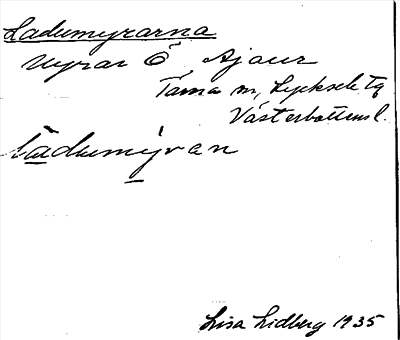 Ladumyrarna
Myrar Ö Ajaur
Tärna sn, Lycksele tg
Västerbottens l.
ladumýran
Lisa Lidberg 1935